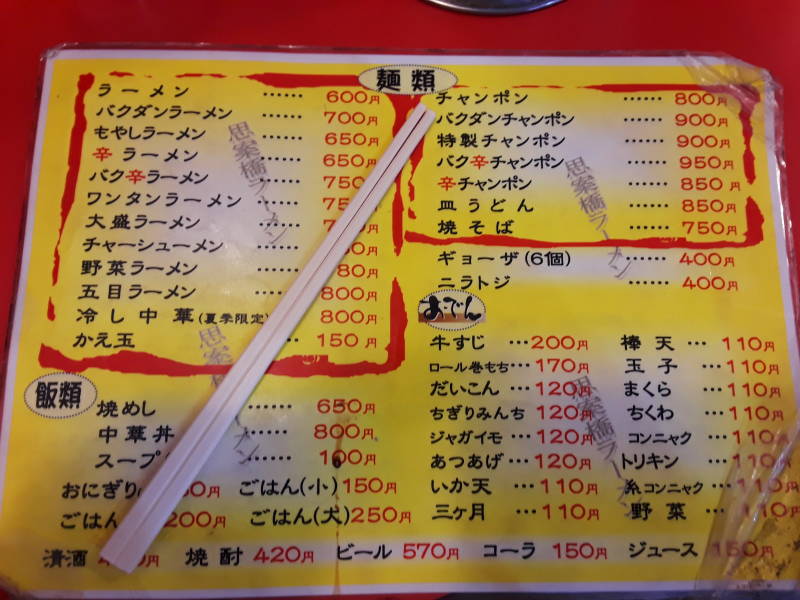 麺類
ラーメン …… 600円
バクダンラーメン …… 700円
もやしラーメン …… 650円
辛ラーメン …… 650円
バク辛ラーメン …… 750
ワンタンラーメン …… 750
大盛ラーメン …… 750
チャーシューメン ……
野菜ラーメン …… 80円
五目ラーメン …… 800円
冷し中華(夏季限定) 800円
かえ玉 150円
チャンポン …… 800円
バクダンチャンポン …… 900円
特製チャンポン …… 900円
バク辛チャンポン …… 950円
辛チャンポン …… 850円
皿うどん …… 850円
焼そば …… 750円
ギョーザ(6個) …… 400円
ニラトジ …… 400円
おでん
牛すじ …200円
ロール巻もち…170円
だいこん …120円
ちぎりみんち 120円
ジャガイモ …120円
あつあげ …120円
いか天 …110円
三ヶ月 …110円
棒天 …110円
玉子 …110円
まくら …110円
ちくわ …110円
コンニャク …110円
トリキン …110円
糸コンニャク…110円
野菜 …110円
飯類
焼めし …… 650円
中華丼 …… 800円
スープ …… 100円
おにぎり ごはん(小) 150円
ごはん 200円 ごはん(大)250円
清酒 焼酎 420円 ビール 570円 コーラ 150円 ジュース 150円
思案橋ラーメン
思案橋ラーメン
思案橋ラーメン
思案橋ラーメン